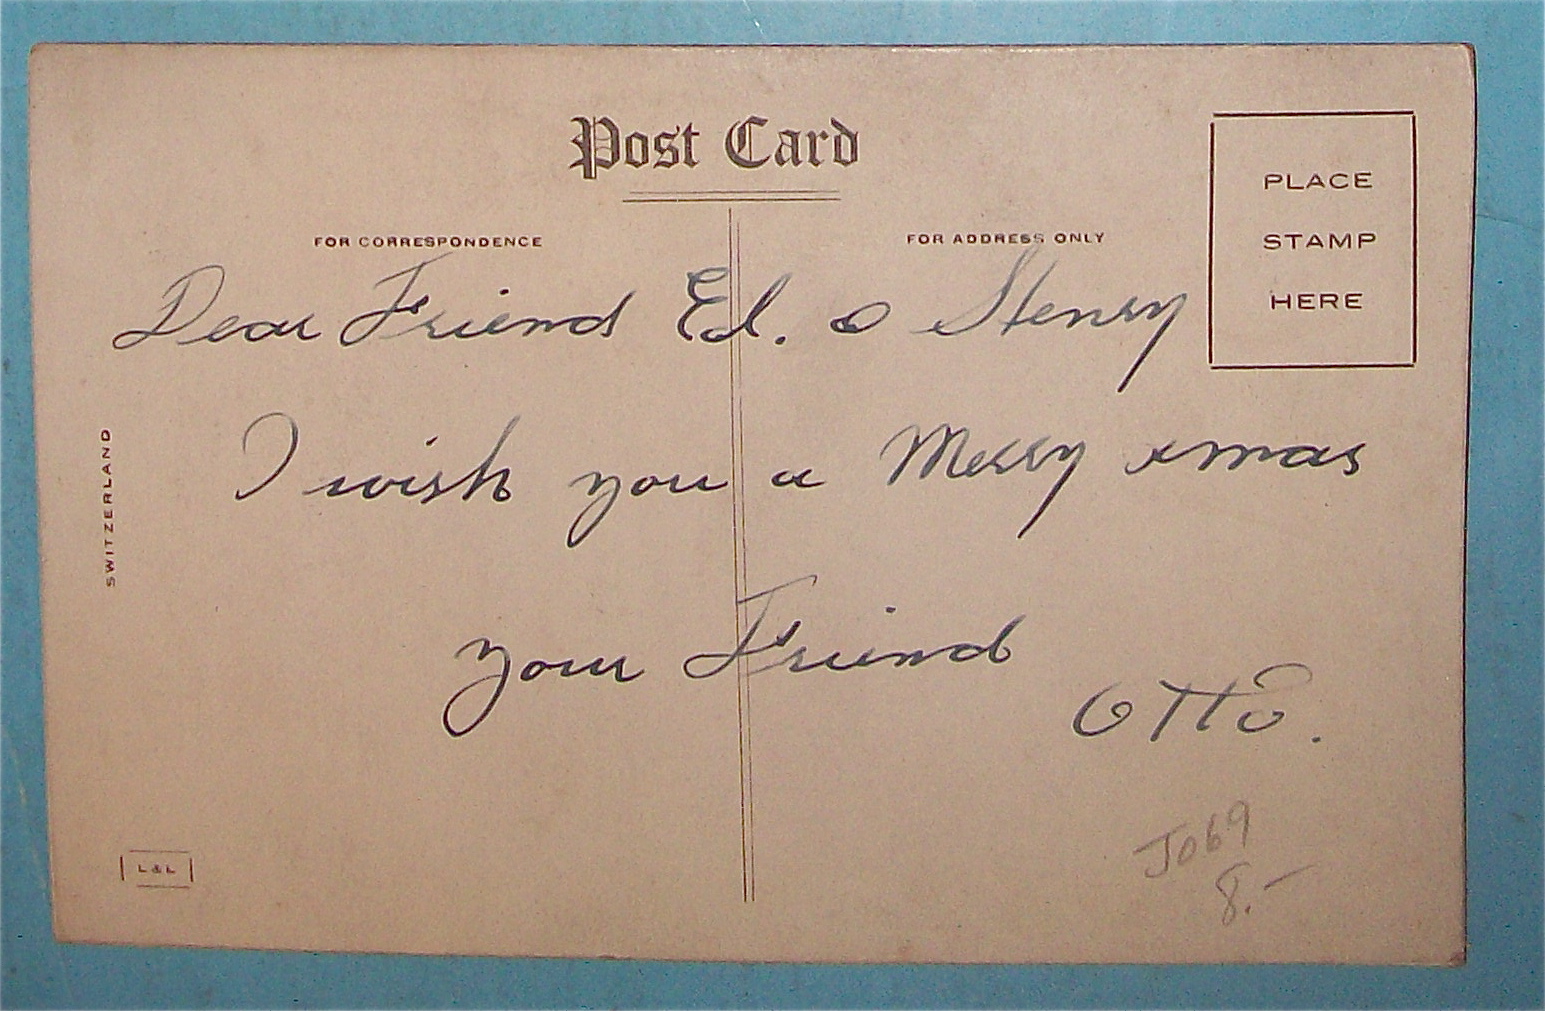 Post Card
FOR CORRESPONDENCE
FOR ADDRESS ONLY
PLACE
STAMP
HERE
Dear Friend Ed. & Henry
I wish you a Merry xmas
your Friend
Otto.
SWITZERLAND
L & L
J069
8.-